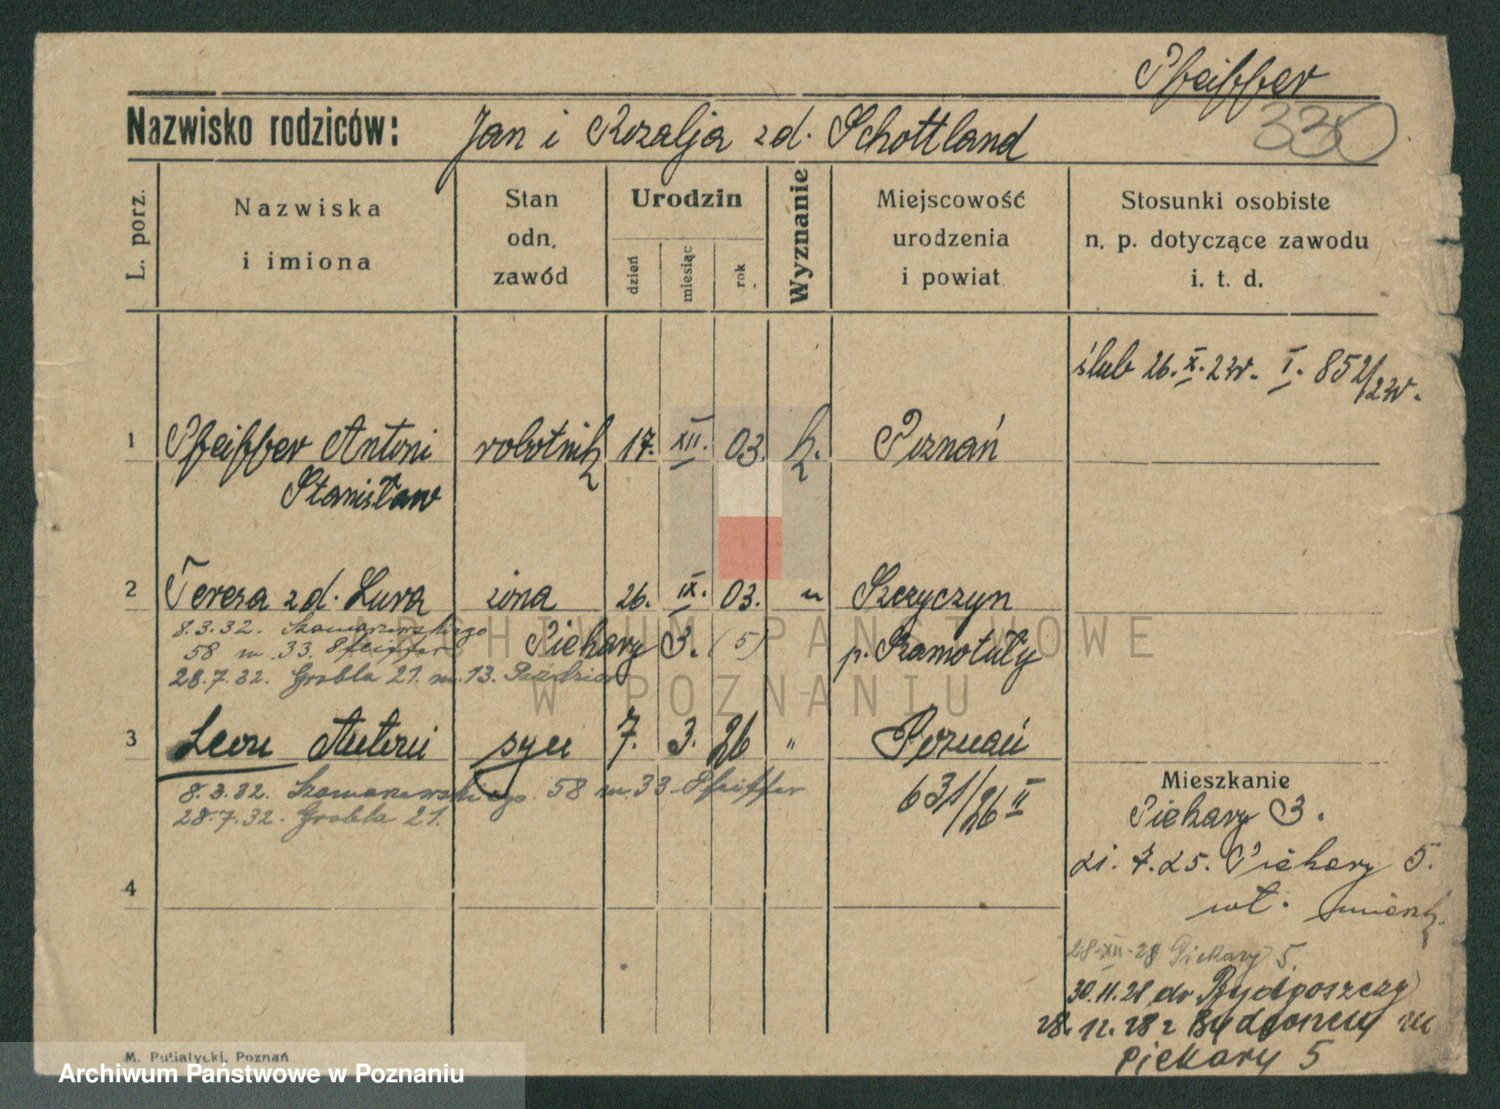 Pfeiffer
330
Nazwisko rodziców: Jan i Rozalja zd. Schottland
L. porz.
Nazwiska
i imiona
Stan
odn.
zawód
Urodzin
dzień
miesiąc
rok
Wyznanie
Miejscowość
urodzenia
i powiat
Stosunki osobiste
n. p. dotyczące zawodu
i. t. d.
ślub 26. X. 24r. I. 852/24r.
1 Pfeiffer Antoni robotnik 17. XII. 03. k. Poznań
Stanisław
2 Teresa zd. Lura żona 26. IX. 03. " Szczyczyn
8.3.32. Szamarzewskiego
58 m 33. Pfeiffer Piekary 3. (5) p. Szamotuły
28.7.32. Grobla 21. m. 13.
3 Leon Antoni syn 7. 3. 26 " Poznań
8.3.32. Szamarzewskiego 58 m 33 Pfeiffer 631/26 II
28.7.32. Grobla 21.
4
Mieszkanie
Piekary 3.
21. 7. 25. Piekary 5.
wł.
28-XII-28 Piekary 5
30.11.28 do Bydgoszczy
28.12.28 z Bydgoszczy na
Piekary 5
M. Putiatycki, Poznań
ARCHIWUM PAŃSTWOWE
W POZNANIU
Archiwum Państwowe w Poznaniu